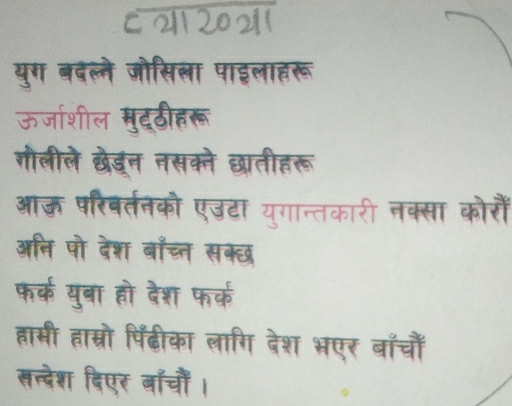 युग बदल्ने जोसिला पाइलाहरू
ऊर्जाशील मुट्ठीहरू
गोलीले छेड्न नसक्ने छातीहरू
आऊ परिवर्तनको एउटा युगान्तकारी नक्सा कोरौँ
अनि पो देश बाँच्न सक्छ
फर्क युवा हो देश फर्क
हामी हाम्रो पिँढीका लागि देश भएर बाँचौँ
सन्देश दिएर बाँचौँ ।